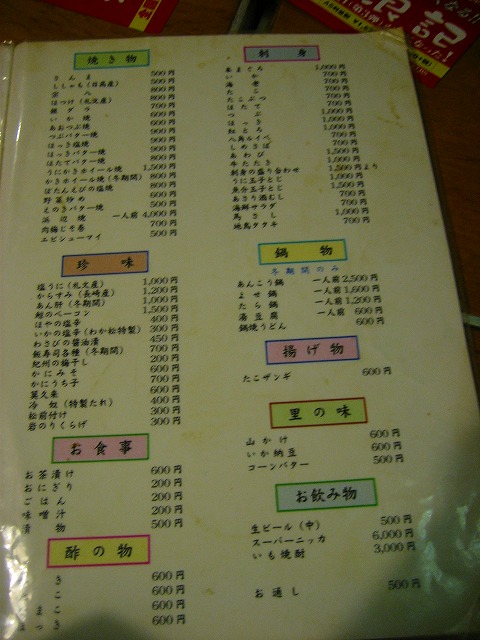 焼き物
さんま 500円
ししゃも(日高産) 500円
宗八 800円
ほっけ(礼文産) 800円
銀ダラ 700円
いか焼 600円
あおつぶ焼 600円
つぶバター焼 900円
ほっき塩焼 900円
ほっきバター焼 900円
ほたてバター焼 800円
うにかきホイール焼 1,500円
かきホイール焼(冬期間) 800円
ぼたんえびの塩焼 800円
野菜炒め 600円
えのきバター焼 500円
浜辺焼 一人前 4,000円
肉梅じそ巻 700円
エビシューマイ 500円
珍味
塩うに(礼文産) 1,000円
からすみ(長崎産) 1,200円
あん肝(冬期間) 1,000円
鯨のベーコン 1,500円
ほやの塩辛 400円
いかの塩辛(わか松特製) 300円
わさびの醤油漬 450円
飯寿司各種(冬期間) 700円
紀州の梅干し 200円
かにみそ 600円
かにうち子 700円
莫久来 600円
冷奴(特製たれ) 400円
松前付け 300円
岩のりくらげ 300円
お食事
お茶漬け 600円
おにぎり 200円
ごはん 200円
味噌汁 200円
漬物 500円
酢の物
600円
600円
600円
600円
刺身
本まぐろ 1,000円
いか 700円
海老 700円
たこ 700円
たこぶつ 700円
ほたて 700円
つぶ 1,000円
ほっき 700円
紅とろ 1,000円
八角ルイベ 700円
しめさば 700円
あわび 1,500円
牛たたき 1,000円
刺身の盛り合わせ 1,500円より
うに玉子とじ 1,000円
魚介玉子とじ 1,500円
あさり酒むし 700円
海鮮サラダ 700円
馬さし 1,000円
地鳥タタキ 700円
鍋物
冬期間のみ
あんこう鍋 一人前 2,500円
よせ鍋 一人前 1,600円
たら鍋 一人前 1,200円
湯豆腐 一人前 600円
鍋焼うどん 600円
揚げ物
たこザンギ 600円
里の味
山かけ 600円
いか納豆 600円
コーンバター 500円
お飲み物
生ビール(中) 500円
スーパーニッカ 6,000円
いも焼酎 3,000円
お通し 500円